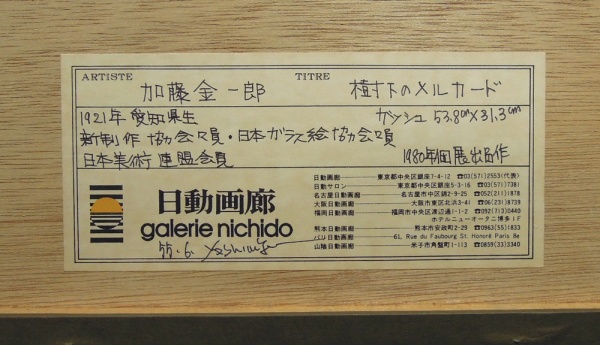 ARTISTE 加藤金一郎 TITRE 樹下のメルカード
1921年 愛知県生 ガッシュ 53.8cm×31.3cm
新制作協会々員・日本ガラス絵協会々員
日本美術連盟会員 1980年個展出品作
日動画廊
galerie nichido
55.6.
日動画廊 東京都中央区銀座7-4-12 ☎03(571)2553(代表)
日動サロン 東京都中央区銀座5-3-16 ☎03(571)7381
名古屋日動画廊 名古屋市中区錦2-9-25 ☎052(21)1878
大阪日動画廊 大阪市東区北浜3-41 ☎06(231)8739
福岡日動画廊 福岡市中央区渡辺通1-1-2 ☎092(713)0440
ホテルニューオータニ博多1F
熊本日動画廊 熊本市安政町2-29 ☎0963(55)1833
パリ日動画廊 61, Rue du Faubourg St. Honoré Paris 8e
山陰日動画廊 米子市角盤町1-113 ☎0859(33)3340